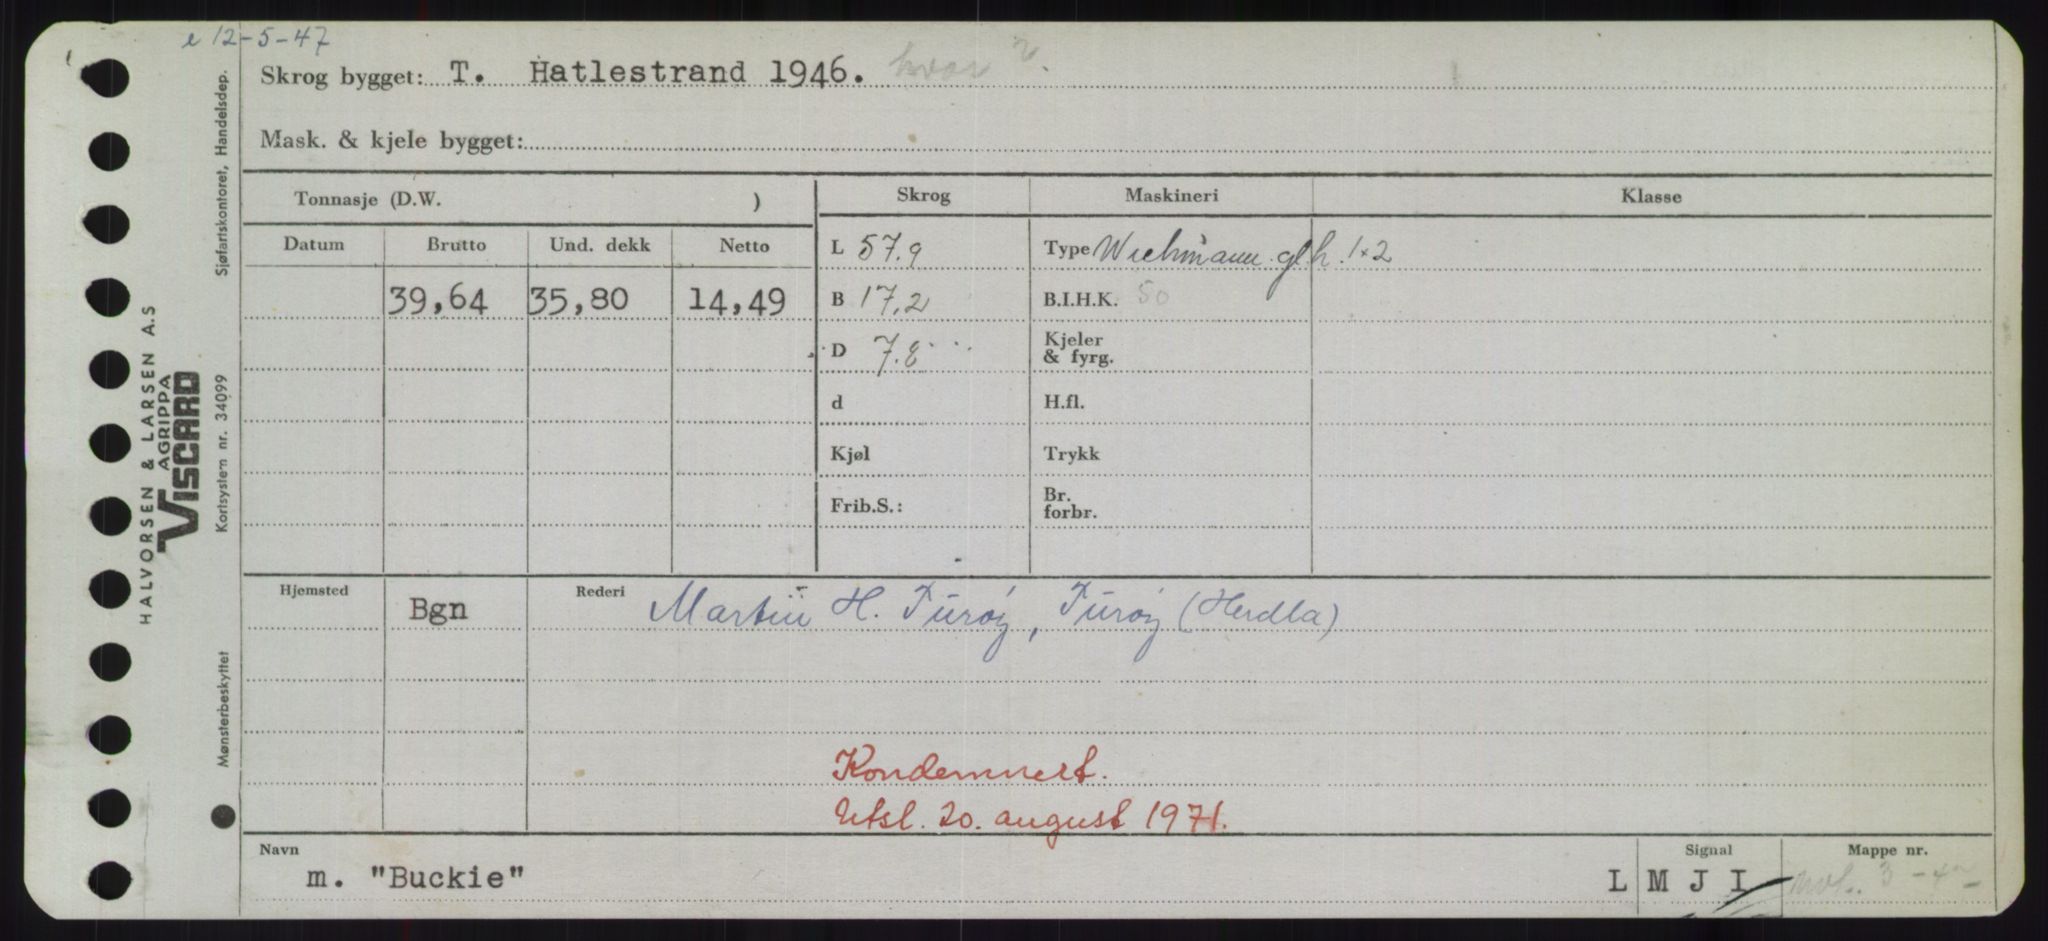 e 12-5-47
Skrog bygget: T. Hatlestrand 1946. hvor ?
Mask. & kjele bygget:
Tonnasje (D.W. )
Skrog
Maskineri
Klasse
Datum
Brutto
Und. dekk
Netto
39,64
35,80
14,49
L 57.9
B 17.2
D 7.8
d
Kjøl
Frib.S.:
Type Wichmann glh. 1x2
B.I.H.K. 50
Kjeler
& fyrg.
H.fl.
Trykk
Br.
forbr.
Hjemsted
Bgn
Rederi
Martin H. Turøy, Turøy (Herdla)
Kondemnert.
Utsl. 20. august 1971.
Navn
m. "Buckie"
Signal
L M J I
Mappe nr.
Sjøfartskontoret, Handelsdep.
Kortsystem nr. 34099
Mønsterbeskyttet
HALVORSEN & LARSEN A.S
AGRIPPA
VISCARD